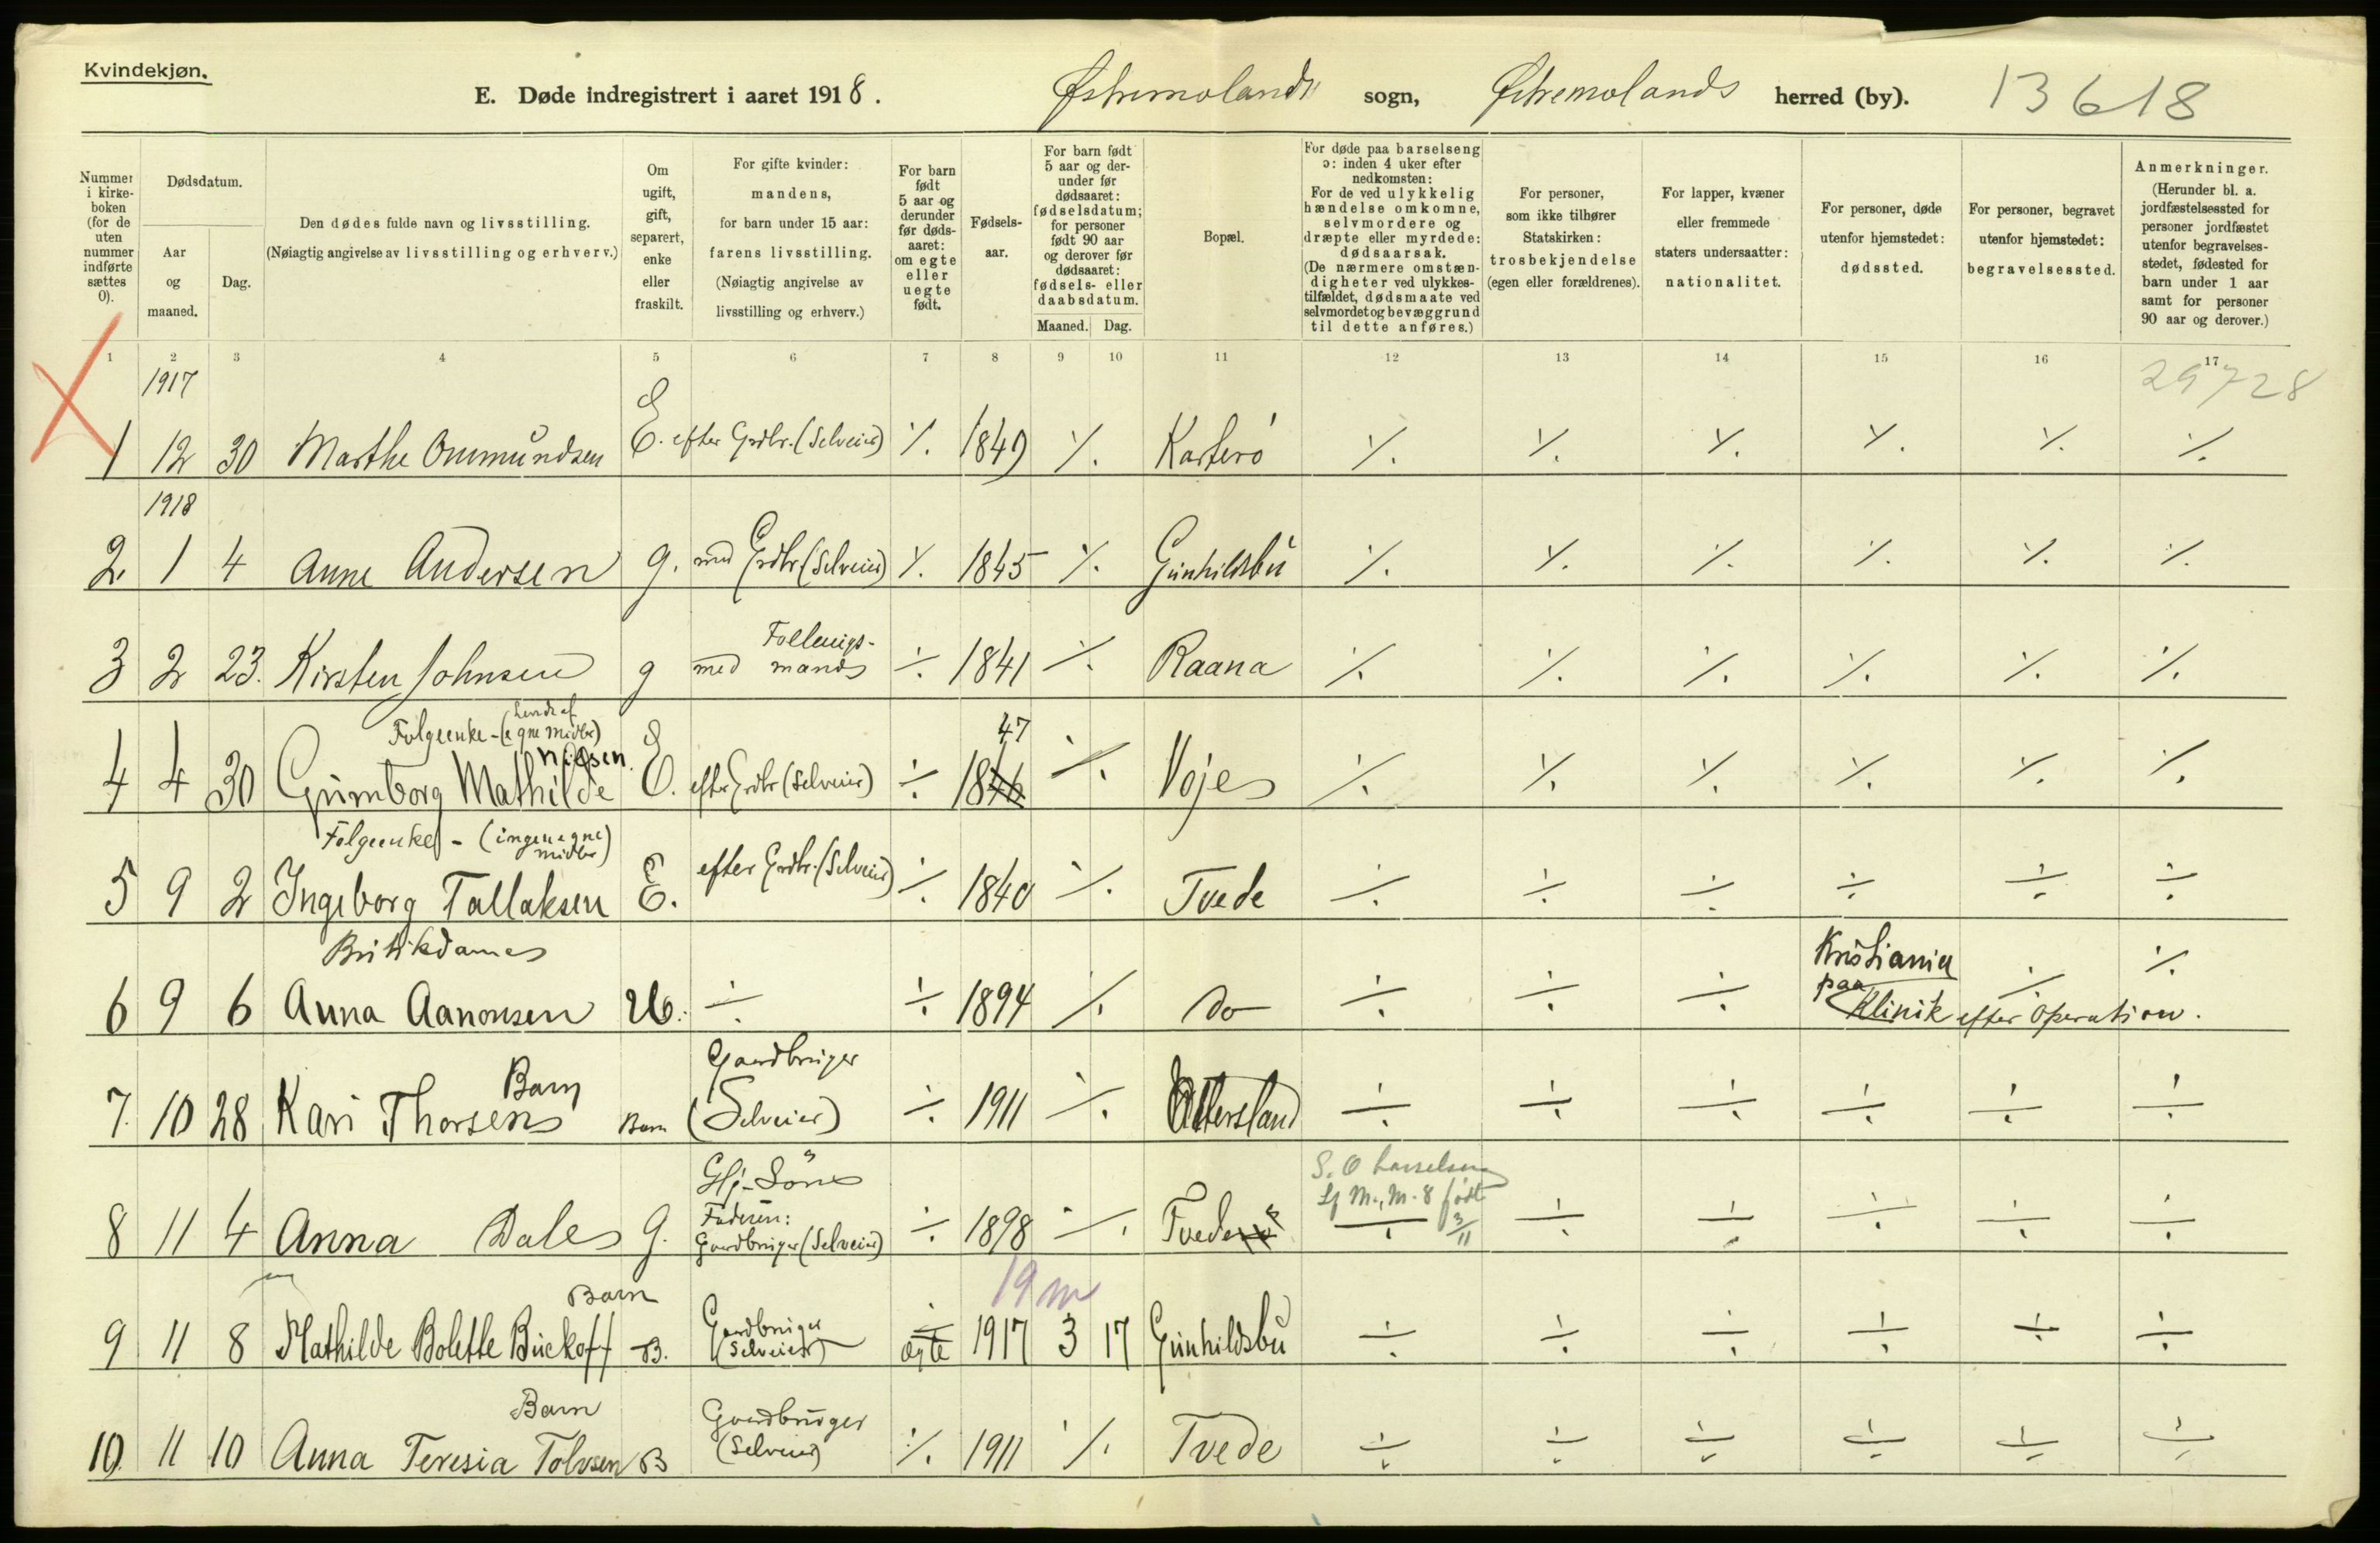 Kvindekjøn.
E. Døde indregistrert i aaret 1918. Østremolands sogn, Østremolands herred (by). 13618
Nummer i kirke-boken (for de uten nummer indførte sættes 0).
Dødsdatum.
Aar og maaned.
Dag.
Den dødes fulde navn og livsstilling.
(Nøiagtig angivelse av livsstilling og erhverv.)
Om ugift, gift, separert, enke eller fraskilt.
For gifte kvinder: mandens, for barn under 15 aar: farens livsstilling. (Nøiagtig angivelse av livsstilling og erhverv.)
For barn født 5 aar og derunder før døds-aaret: om egte eller uegte født.
Fødsels-aar.
For barn født 5 aar og der-under før dødsaaret: fødselsdatum; for personer født 90 aar og derover før dødsaaret: fødsels- eller daabsdatum.
Maaned. Dag.
Bopæl.
For døde paa barselseng ɔ: inden 4 uker efter nedkomsten: For de ved ulykkelig hændelse omkomne, selvmordere og dræpte eller myrdede: dødsaarsak. (De nærmere omstæn-digheter ved ulykkes-tilfældet, dødsmaate ved selvmordet og bevæggrund til dette anføres.)
For personer, som ikke tilhører Statskirken: trosbekjendelse (egen eller forældrenes).
For lapper, kvæner eller fremmede staters undersaatter: nationalitet.
For personer, døde utenfor hjemstedet: dødssted.
For personer, begravet utenfor hjemstedet: begravelsessted.
Anmerkninger. (Herunder bl. a. jordfæstelsessted for personer jordfæstet utenfor begravelses-stedet, fødested for barn under 1 aar samt for personer 90 aar og derover.)
1 2 3 4 5 6 7 8 9 10 11 12 13 14 15 16 17
29728
1917
1 12 30 Marthe Ommundsen E. efter Grdbr. (Selveier) ⁒ 1849 ⁒ Karterö ⁒ ⁒ ⁒ ⁒ ⁒ ⁒
1918
2 1 4 Anne Andersen g. med Grdbr (Selveier) ⁒ 1845 ⁒ Gunhildsbu ⁒ ⁒ ⁒ ⁒ ⁒ ⁒
3 2 23. Kirsten Johnsen g med mands ÷ 1841 ⁒ Raana ⁒ ⁒ ⁒ ⁒ ⁒ ⁒
Folgeenke - (egne Midler) 47
4 4 30 Gunborg Mathilde Nilsen E. efter Grdbr (Selveier) ÷ 1846 ⁒ Vøjes ⁒ ⁒ ⁒ ⁒ ⁒ ⁒
Folgeenke - (ingen egne midler)
5 9 2 Ingeborg Tallaksen E. efter Grdbr. (Selveier) ÷ 1840 ⁒ Tvede ÷ ÷ ÷ ÷ ÷ ÷
Butikdame Kristiania
6 9 6 Anna Aanonsen U. ÷ ÷ 1894 ⁒ do ÷ ÷ ÷ paa Klinik efter Operation. ⁒ ⁒
Barn Gaardbruger
7. 10 28 Kari Thorsen Barn (Selveier) ÷ 1911 ⁒ Ottersland ÷ ÷ ÷ ÷ ÷ ÷
8 11 4 Anna Dale g. Faderen: Gaardbruger (Selveier) ÷ 1898 ⁒ Tvede ÷ M. 8 født 3/11 ÷ ÷ ÷ ÷ ÷
19 m
Barn Gardbruger
9 11 8 Mathilde Bolette Bückoff B. (Selveier) ægte 1917 3 17 Gunhildsbu ÷ ÷ ÷ ÷ ÷ ÷
Barn Gaardbruger
10. 11 10 Anna Teresia Tolvsen B (Selveier) ⁒ 1911 ⁒ Tvede ÷ ÷ ÷ ÷ ÷ ÷